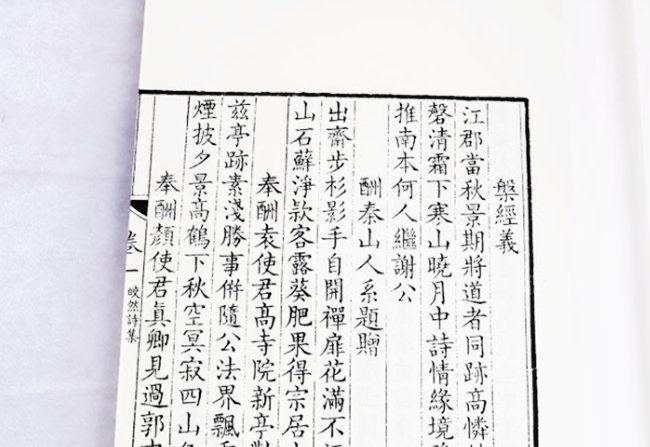 槃經義
江郡當秋景期將道者同跡高憐
磬清霜下寒山曉月中詩情緣境
推南本何人繼謝公
酬秦山人系題贈
出齋步杉影手自開禪扉花滿不
山石蘇淨款客露葵肥果得宗居
奉酬袁使君高寺院新亭對
茲亭跡素淺勝事併隨公法界飄
煙披夕景高鶴下秋空冥寂四山
奉酬顏使君真卿見過郭中
卷一 皎然詩集